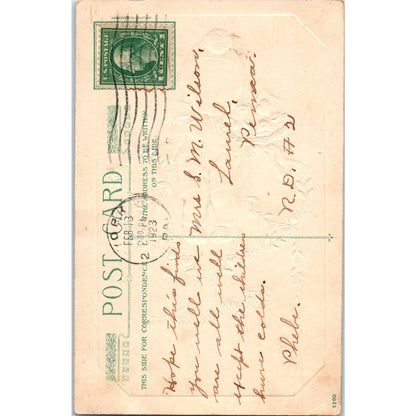 U.S. POSTAGE
1 CENT 1
FEB 13
1923
PA.
2
POST CARD
THIS SIDE FOR CORRESPONDENCE
THE ADDRESS TO BE WRITTEN
ON THIS SIDE.
Hope this finds
you all well we
are all well
except the children
have colds.
Phebe.
Mrs S. M. Wilson,
Laurel,
Penna.
R.D. #2